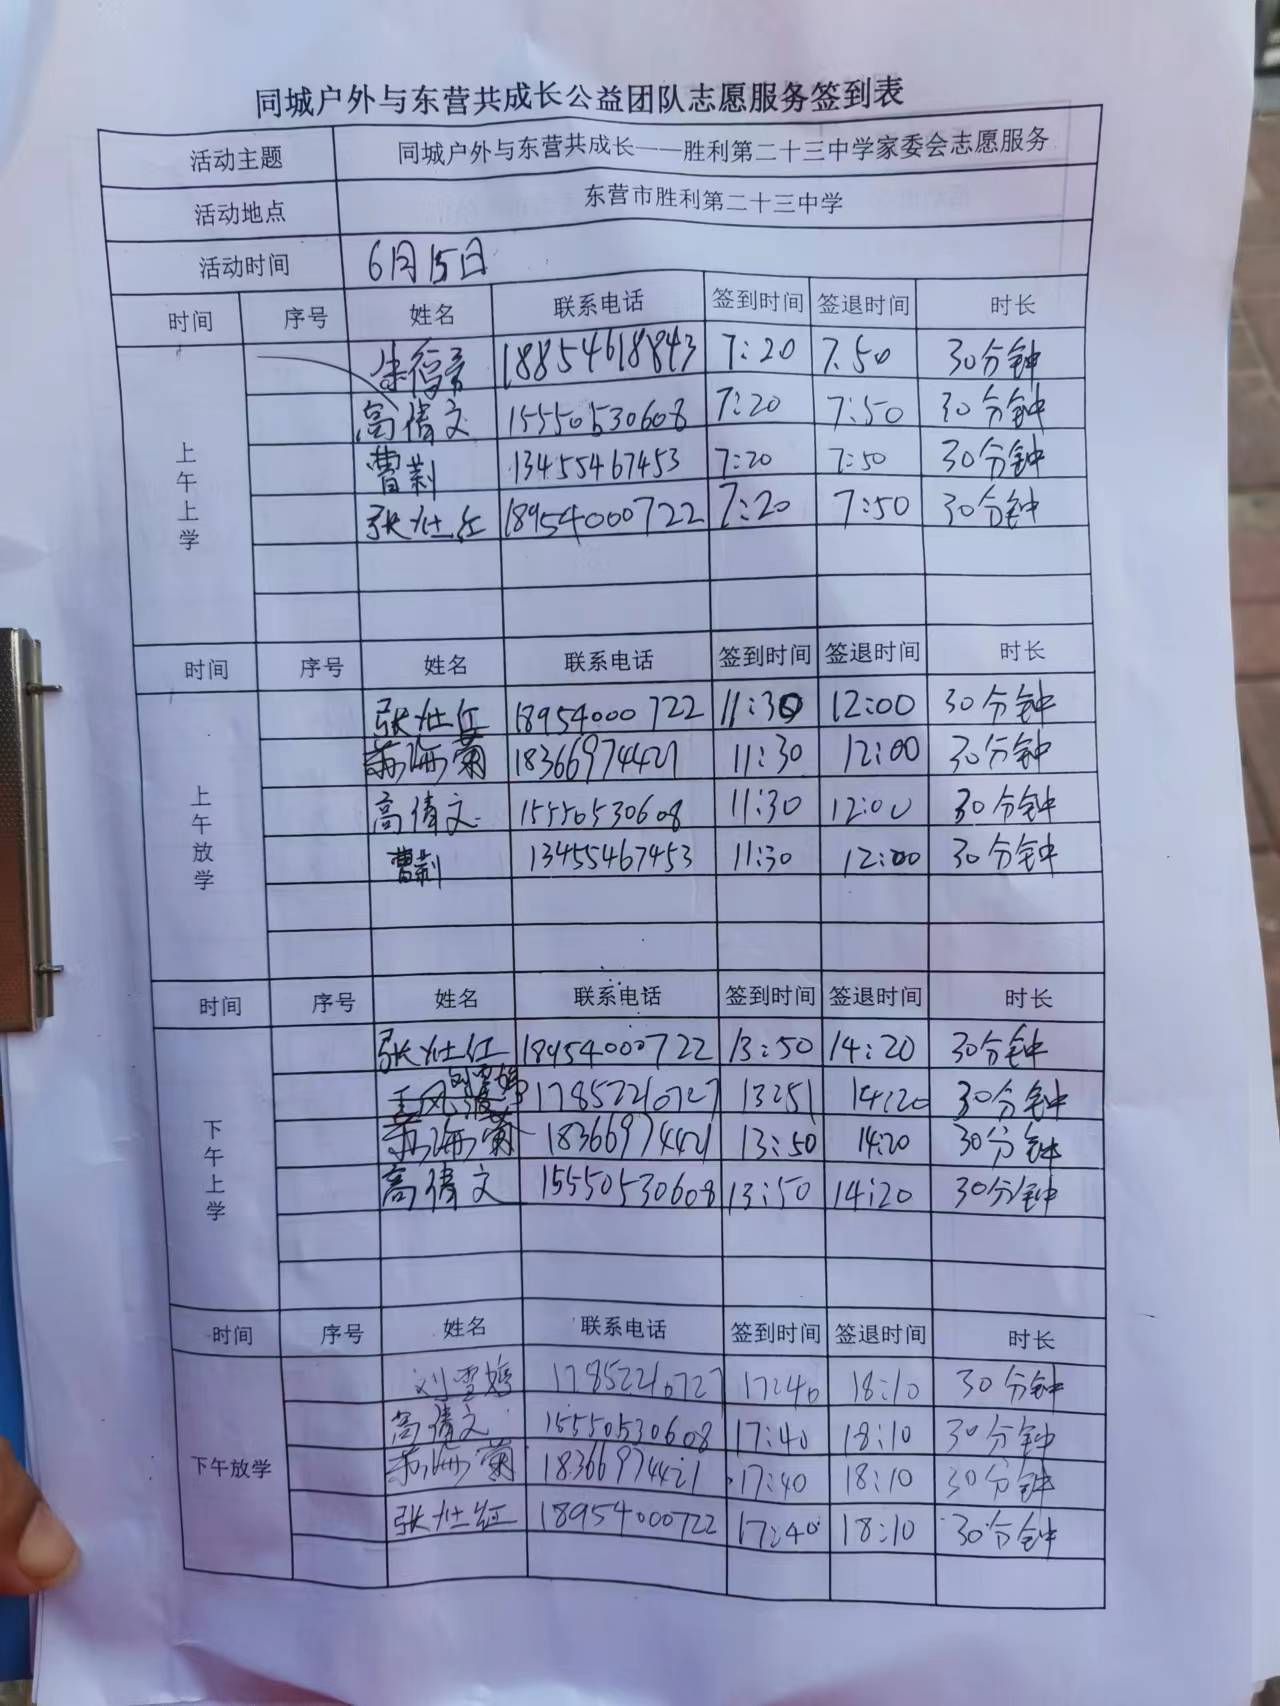 同城户外与东营共成长公益团队志愿服务签到表
活动主题 同城户外与东营共成长——胜利第二十三中学家委会志愿服务
活动地点 东营市胜利第二十三中学
活动时间 6月15日
时间 序号 姓名 联系电话 签到时间 签退时间 时长
上午上学
18854618843 7:20 7.50 30分钟
高倩文 15550530608 7:20 7:50 30分钟
曹 13455467453 7:20 7:50 30分钟
张 18954000722 7:20 7:50 30分钟
时间 序号 姓名 联系电话 签到时间 签退时间 时长
上午放学
张 18954000722 11:30 12:00 30分钟
海菊 18366974421 11:30 12:00 30分钟
高倩文 15550530608 11:30 12:00 30分钟
曹 13455467453 11:30 12:00 30分钟
时间 序号 姓名 联系电话 签到时间 签退时间 时长
下午上学
张 红 18954000722 13:50 14:20 30分钟
17852210727 13:51 14:20 30分钟
海菊 18366974421 13:50 14:20 30分钟
高倩文 15550530608 13:50 14:20 30分钟
时间 序号 姓名 联系电话 签到时间 签退时间 时长
下午放学
刘雪 17852210727 17:40 18:10 30分钟
高倩文 15550530608 17:40 18:10 30分钟
海菊 18366974421 17:40 18:10 30分钟
张 红 18954000722 17:40 18:10 30分钟